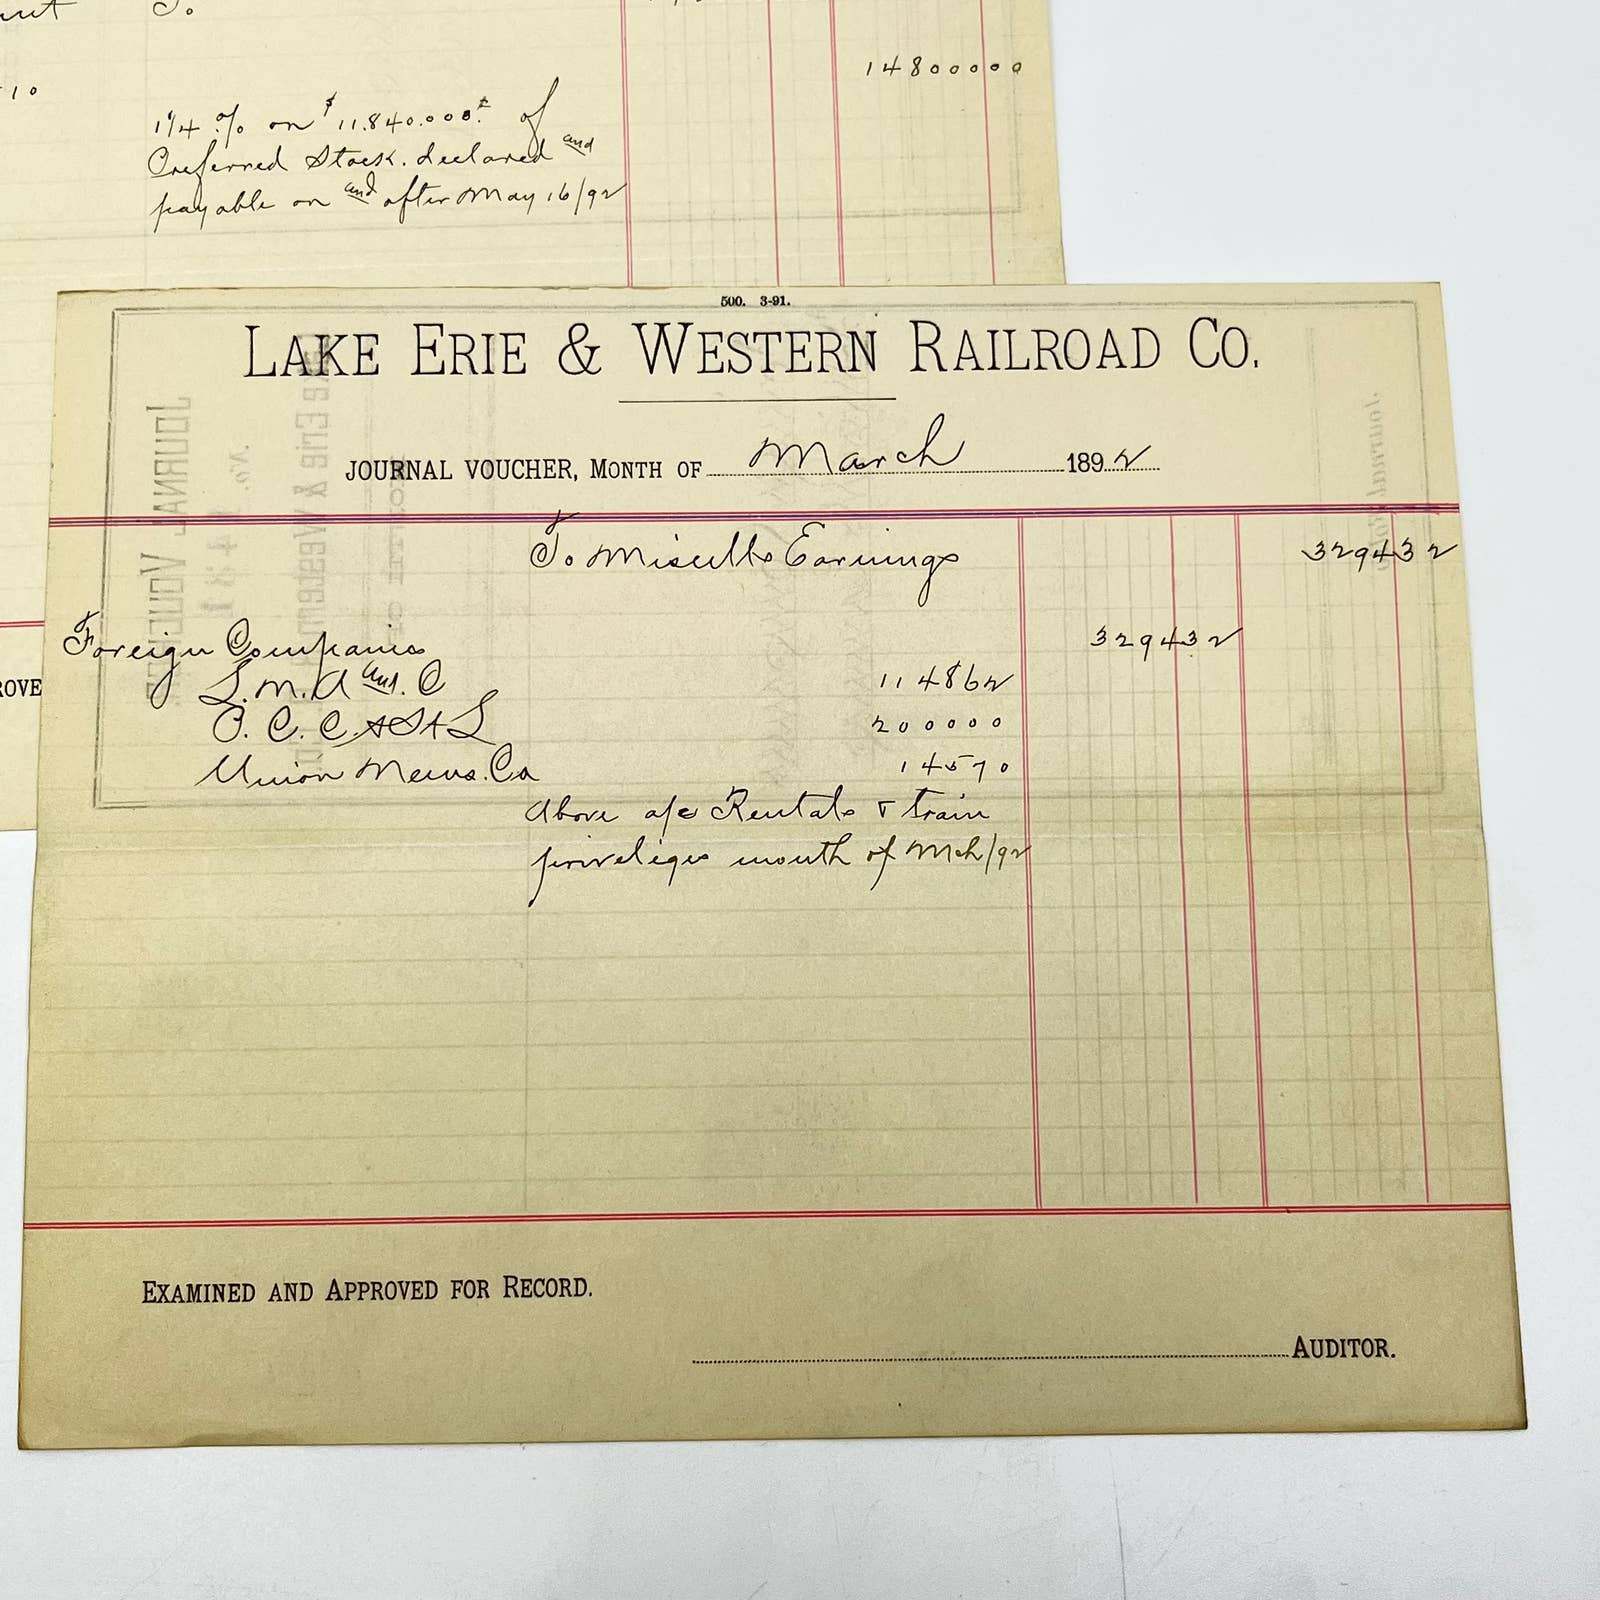 To
148000 00
10
1 1/4 % on $11.840.000.= of
Preferred Stock. declared and
payable on and after May 16/92
500. 3-91.
LAKE ERIE & WESTERN RAILROAD CO.
JOURNAL VOUCHER, MONTH OF March 1892
To Miscells Earnings 3294 32
Foreign Companies 3294 32
L. N. A and. C 1148 62
C. C. C. & St L 2000 00
Union News. Co 145 70
Above a/c Rentals & train
priveliges month of Mch/92
EXAMINED AND APPROVED FOR RECORD.
AUDITOR.
ROVE